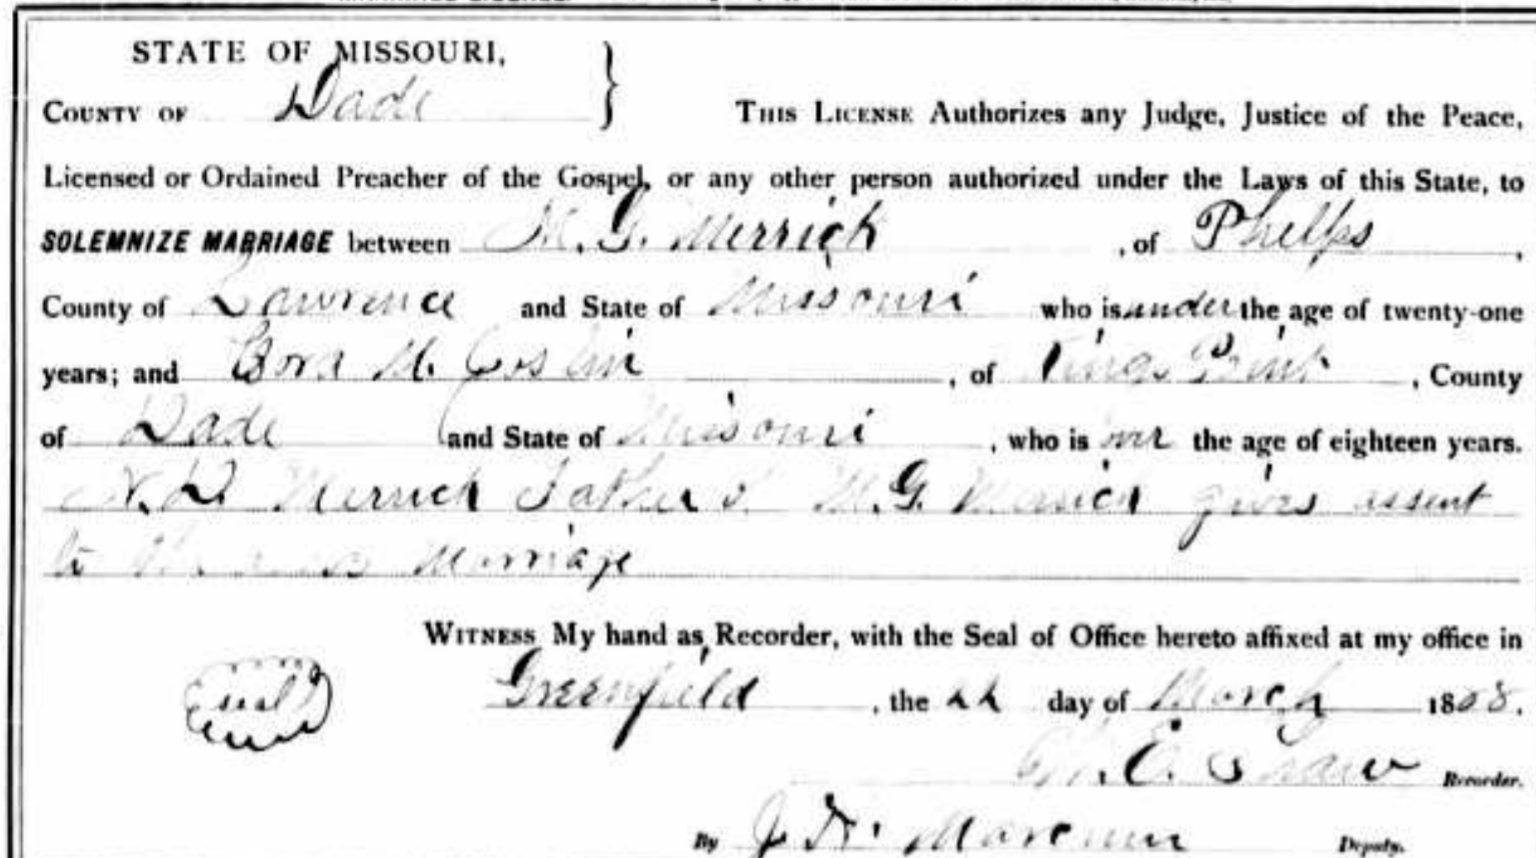 STATE OF MISSOURI,
COUNTY OF Dade } THIS LICENSE Authorizes any Judge, Justice of the Peace,
Licensed or Ordained Preacher of the Gospel, or any other person authorized under the Laws of this State, to
SOLEMNIZE MARRIAGE between M. G. Merrick, of Phelps,
County of Lawrence and State of Missouri who is under the age of twenty-one
years; and M. Joslin, of Kings Point, County
of Dade and State of Missouri, who is over the age of eighteen years.
N. D. Merrick Father of M. G. Merrick gives assent
to the Marriage
WITNESS My hand as Recorder, with the Seal of Office hereto affixed at my office in
Seal Greenfield, the 22 day of March 18
E. Shaw Recorder.
By J. Deputy.